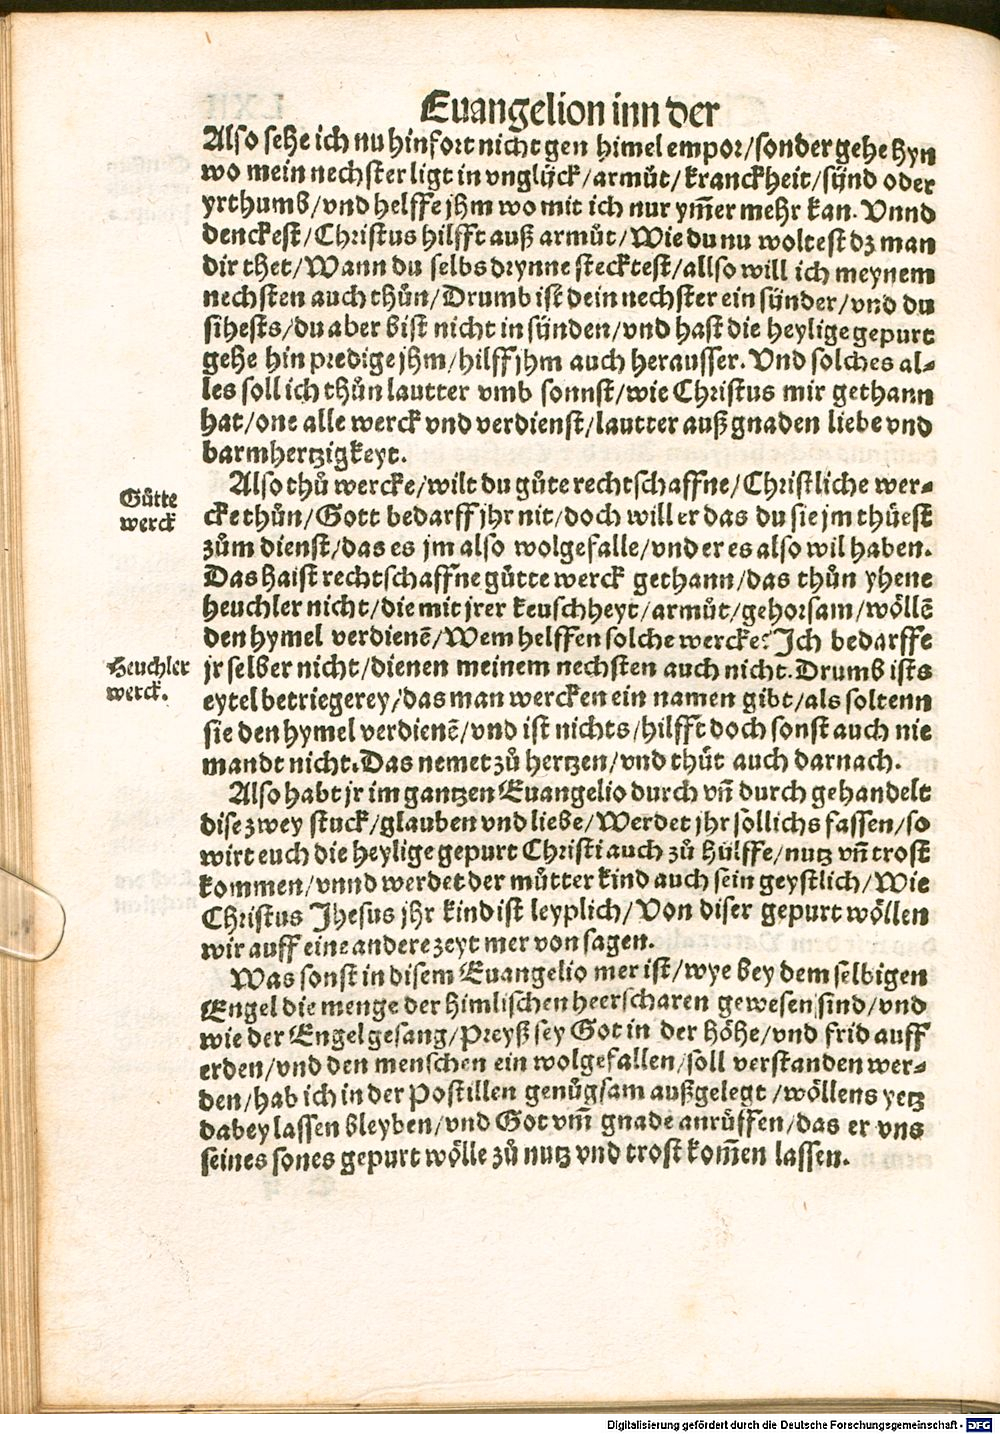 Euangelion inn der
Also sehe ich nu hinfort nicht gen himel empor/sonder gehe hyn
wo mein nechster ligt in vnglück/armůt/kranckheit/sünd oder
yrthumb/vnd helffe jhm wo mit ich nur ym̃er mehr kan. Vnnd
denckest/Christus hilfft auß armůt/Wie du nu woltest dz man
dir thet/Wann du selbs drynne stecktest/allso will ich meynem
nechsten auch thůn/Drumb ist dein nechster ein sünder/vnd du
sihests/du aber bist nicht in sünden/vnd hast die heylige gepurt
gehe hin predige jhm/hilff jhm auch herausser. Vnd solches al⸗
les soll ich thůn lautter vmb sonnst/wie Christus mir gethann
hat/one alle werck vnd verdienst/lautter auß gnaden liebe vnd
barmhertzigkeyt.
Also thů wercke/wilt du gůte rechtschaffne/Christliche wer⸗
Gůtte
werck
cke thůn/Gott bedarff jhr nit/doch will er das du sie jm thüest
zům dienst/das es jm also wolgefalle/vnd er es also wil haben.
Das haist rechtschaffne gůtte werck gethann/das thůn yhene
heuchler nicht/die mit jrer keuschheyt/armůt/gehorsam/wöllẽ
den hymel verdienẽ/Wem helffen solche wercke? Ich bedarffe
Heuchler
werck.
jr selber nicht/dienen meinem nechsten auch nicht. Drumb ists
eytel betriegerey/das man wercken ein namen gibt/als soltenn
sie den hymel verdienẽ/vnd ist nichts/hilfft doch sonst auch nie
mandt nicht. Das nemet zů hertzen/vnd thůt auch darnach.
Also habt jr im gantzen Euangelio durch vñ durch gehandelt
dise zwey stuck/glauben vnd liebe/Werdet jhr sollichs fassen/so
wirt euch die heylige gepurt Christi auch zů hülffe/nutz vñ trost
kommen/vnnd werdet der můtter kind auch sein geystlich/Wie
Christus Jhesus jhr kind ist leyplich/Von diser gepurt wöllen
wir auff eine andere zeyt mer von sagen.
Was sonst in disem Euangelio mer ist/wye bey dem selbigen
Engel die menge der himlischen heerscharen gewesen sind/vnd
wie der Engel gesang/Preyß sey Got in der höhe/vnd frid auff
erden/vnd den menschen ein wolgefallen/soll verstanden wer⸗
den/hab ich in der Postillen genůgsam außgelegt/wöllens yetz
dabey lassen bleyben/vnd Got vm̃ gnade anrůffen/das er vns
seines sones gepurt wölle zů nutz vnd trost kom̃en lassen.
Digitalisierung gefördert durch die Deutsche Forschungsgemeinschaft - DFG